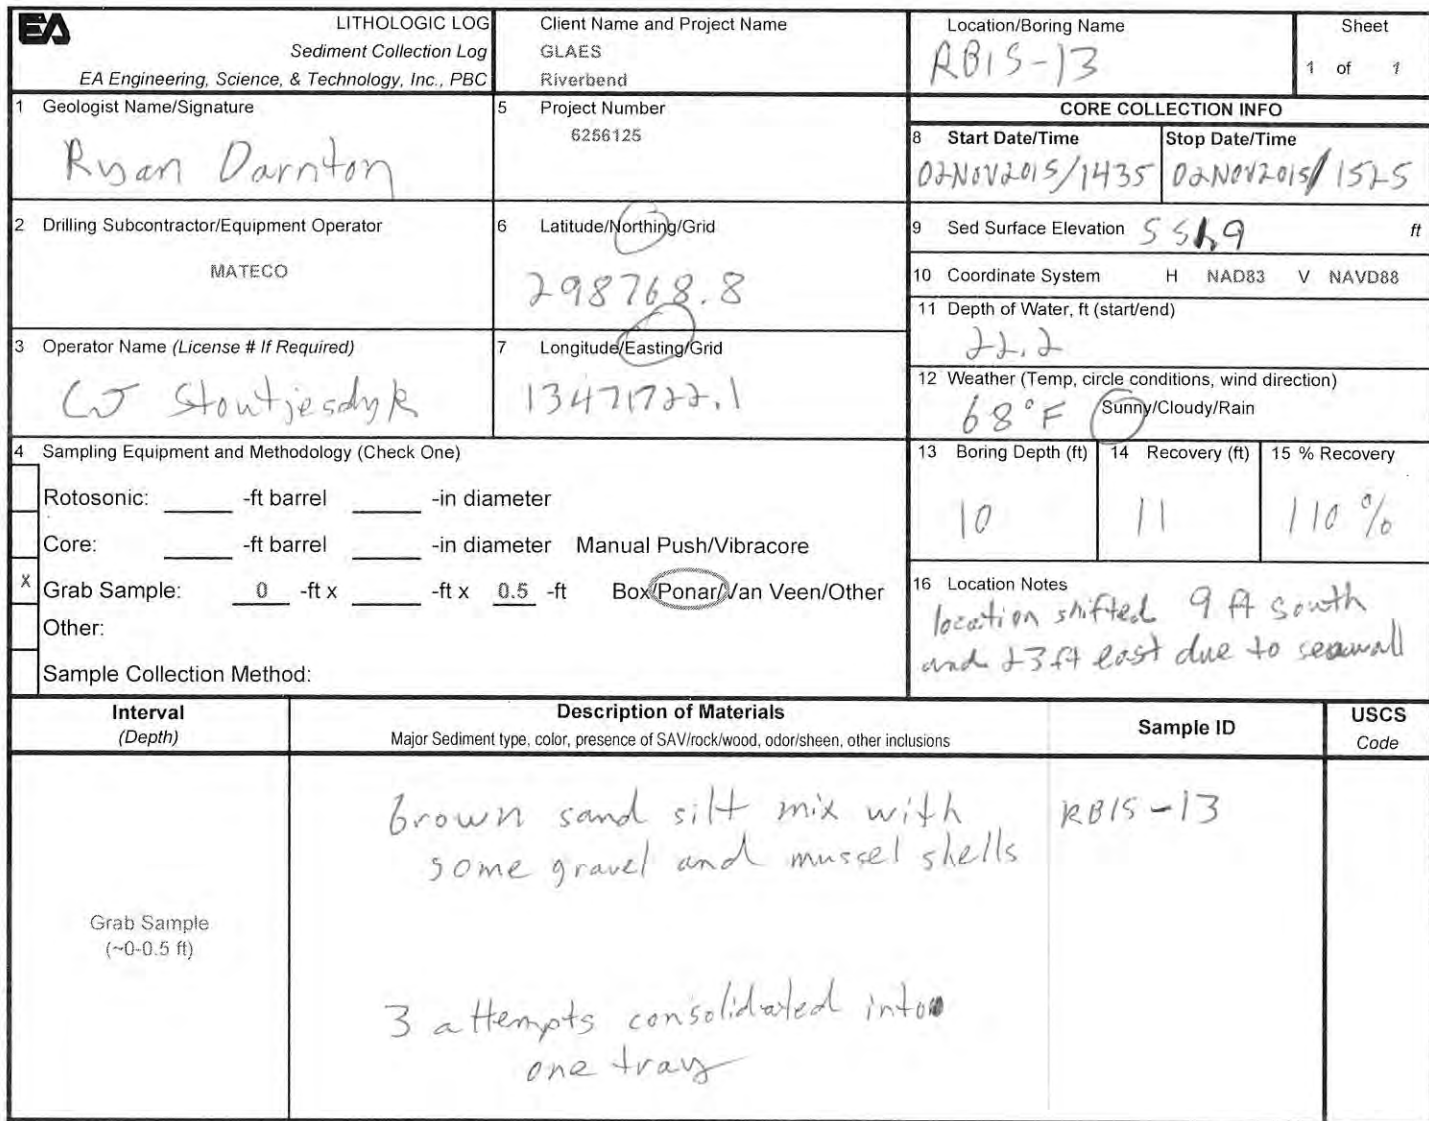 EA
LITHOLOGIC LOG
Sediment Collection Log
EA Engineering, Science, & Technology, Inc., PBC
Client Name and Project Name
GLAES
Riverbend
Location/Boring Name
RB15-13
Sheet
1 of 1
1 Geologist Name/Signature
Ryan Darnton
5 Project Number
6256125
CORE COLLECTION INFO
8 Start Date/Time
02NOV2015/1435
Stop Date/Time
02NOV2015/1525
2 Drilling Subcontractor/Equipment Operator
MATECO
6 Latitude/Northing/Grid
298768.8
9 Sed Surface Elevation ft
10 Coordinate System H NAD83 V NAVD88
11 Depth of Water, ft (start/end)
22.2
3 Operator Name (License # If Required)
CJ Stoutjesdyk
7 Longitude/Easting/Grid
13471722.1
12 Weather (Temp, circle conditions, wind direction)
68°F Sunny/Cloudy/Rain
4 Sampling Equipment and Methodology (Check One)
Rotosonic: ____ -ft barrel ____ -in diameter
Core: ____ -ft barrel ____ -in diameter Manual Push/Vibracore
X Grab Sample: 0 -ft x ____ -ft x 0.5 -ft Box/Ponar/Van Veen/Other
Other:
Sample Collection Method:
13 Boring Depth (ft)
10
14 Recovery (ft)
11
15 % Recovery
110 %
16 Location Notes
location shifted 9 ft south
and 23 ft east due to seawall
Interval
(Depth)
Description of Materials
Major Sediment type, color, presence of SAV/rock/wood, odor/sheen, other inclusions
Sample ID
USCS
Code
Grab Sample
(~0-0.5 ft)
brown sand silt mix with
some gravel and mussel shells
RB15-13
3 attempts consolidated into
one tray